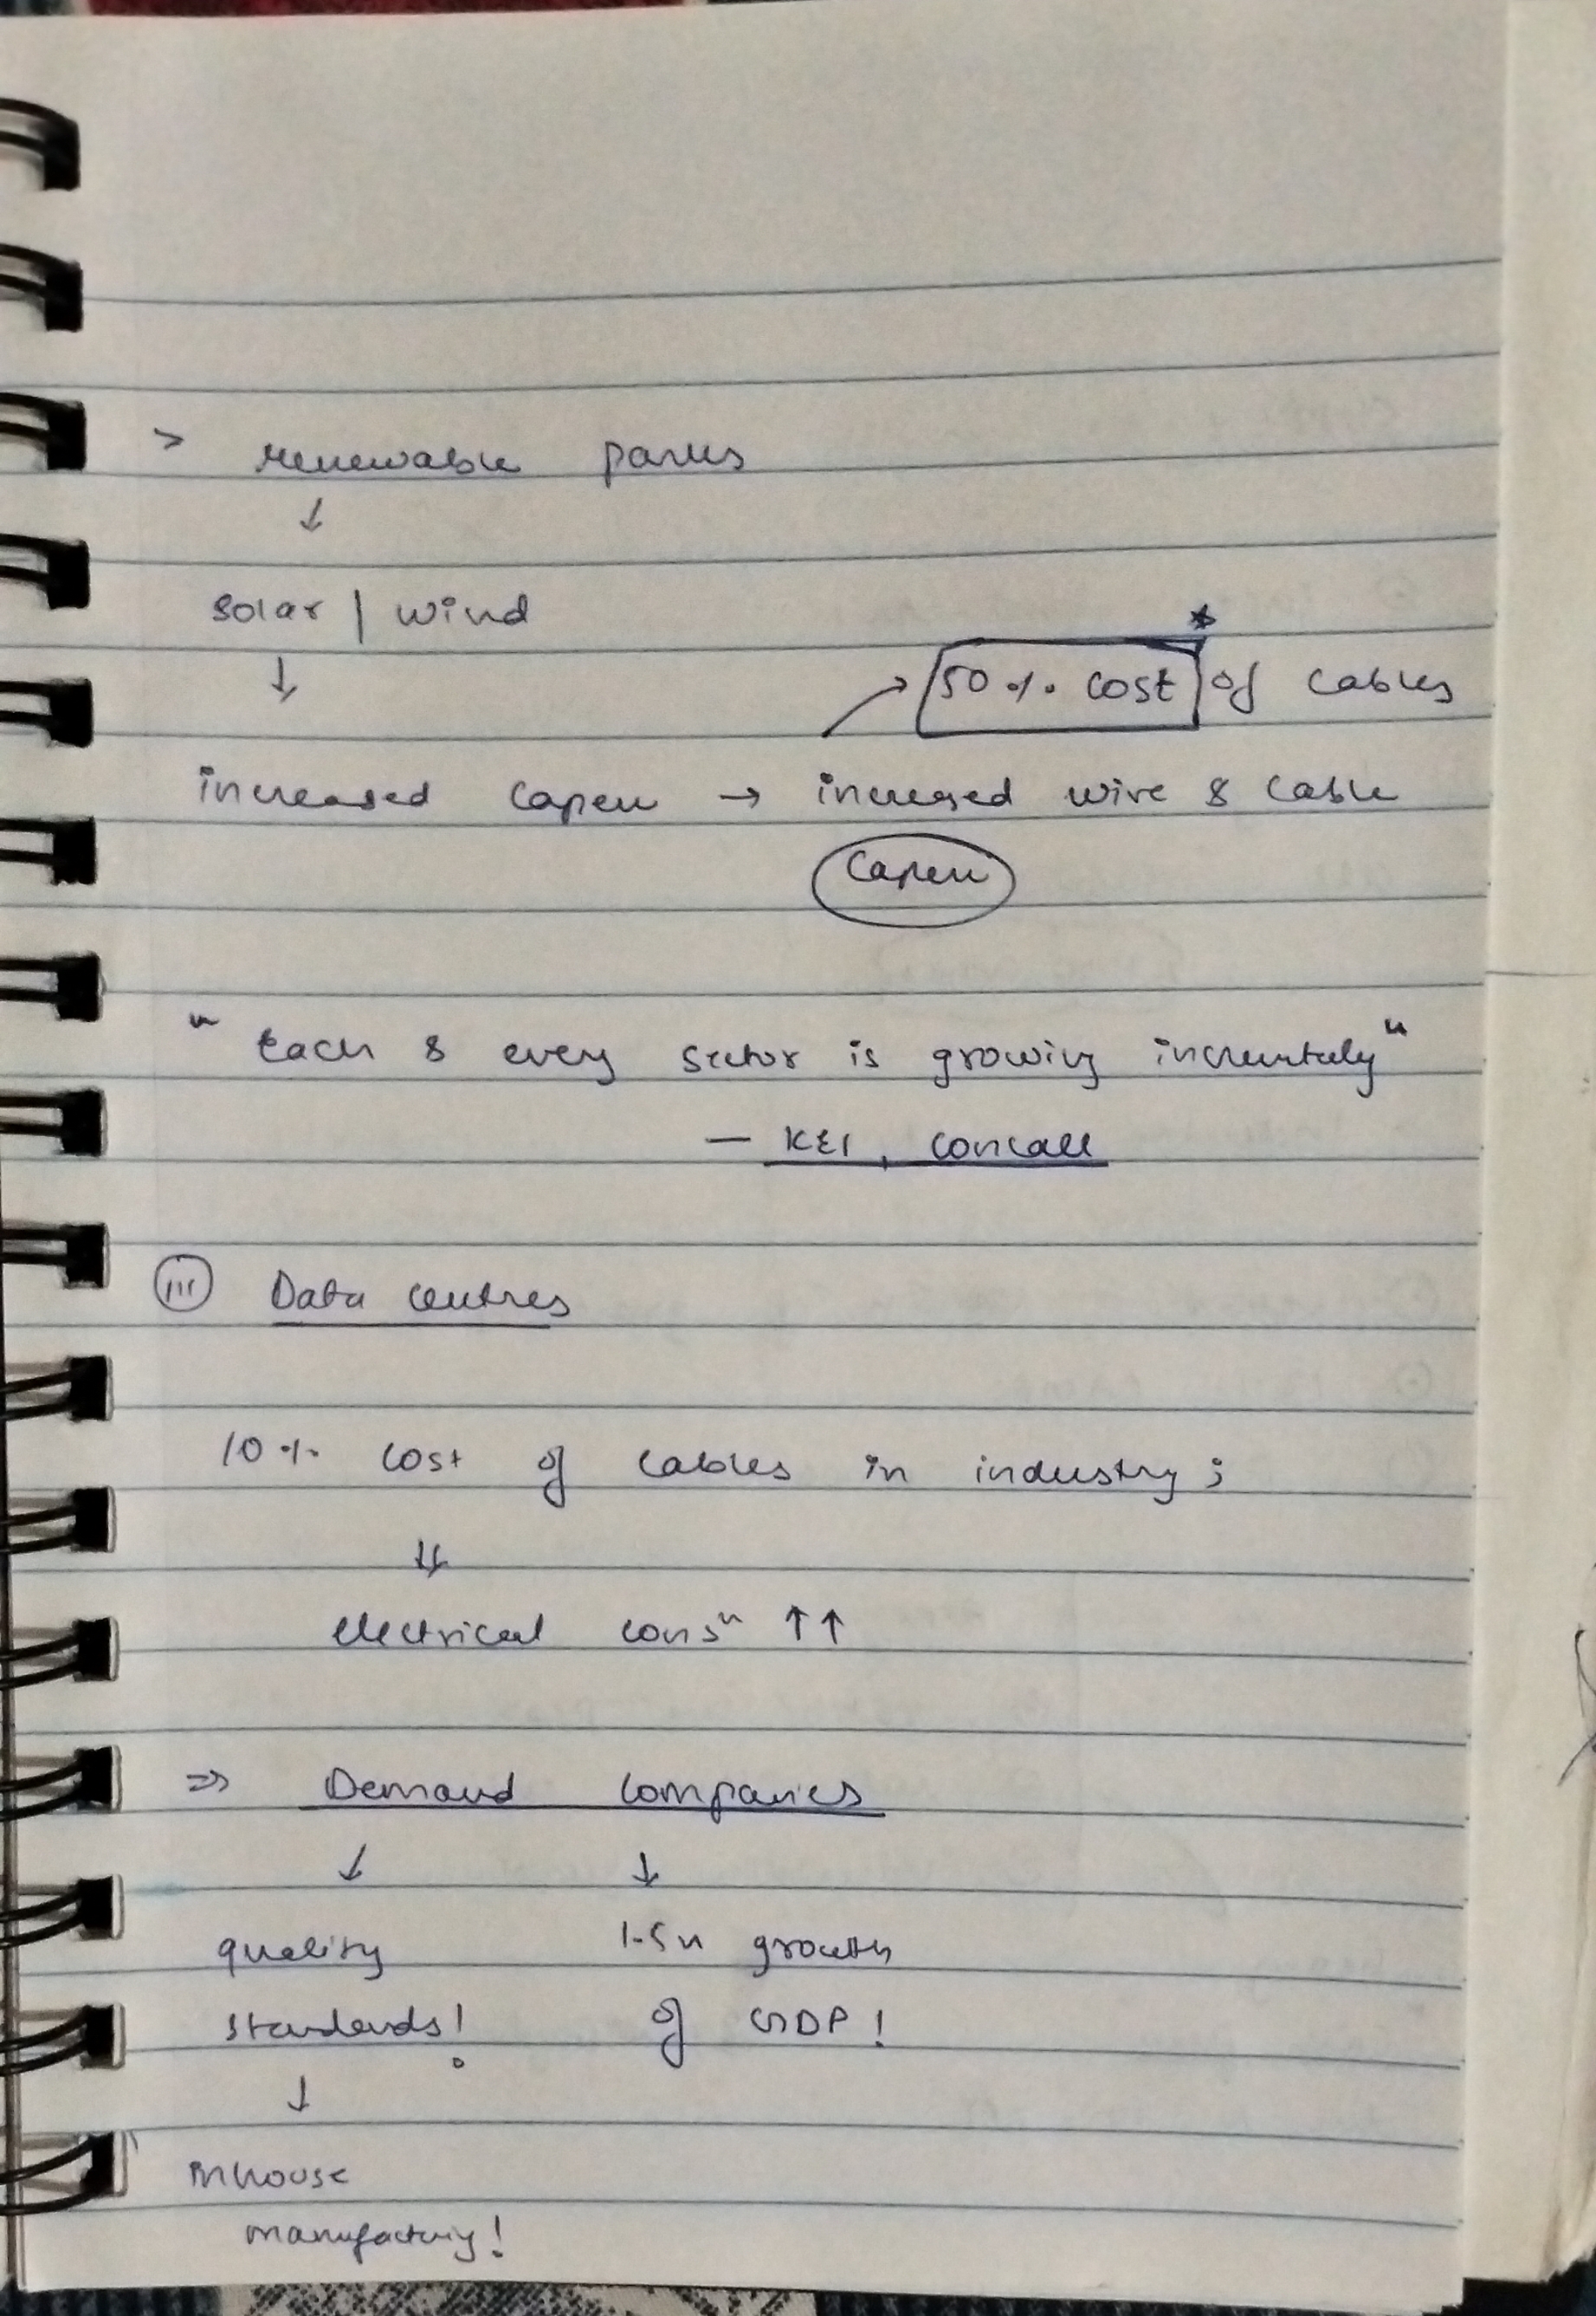 > renewable parks
↓
solar | wind
↓
* 
→ 50 % cost of cables
increased capex → increased wire & cable
capex
" Each & every sector is growing incrementaly "
— KEI, concall
(iii) Data centres
10 % cost of cables in industry ;
⇓
electrical consⁿ ↑↑
⇒ Demand companies
↓ ↓
quality 1.5x growth
standards! of GDP !
↓
Inhouse
manufacturing!